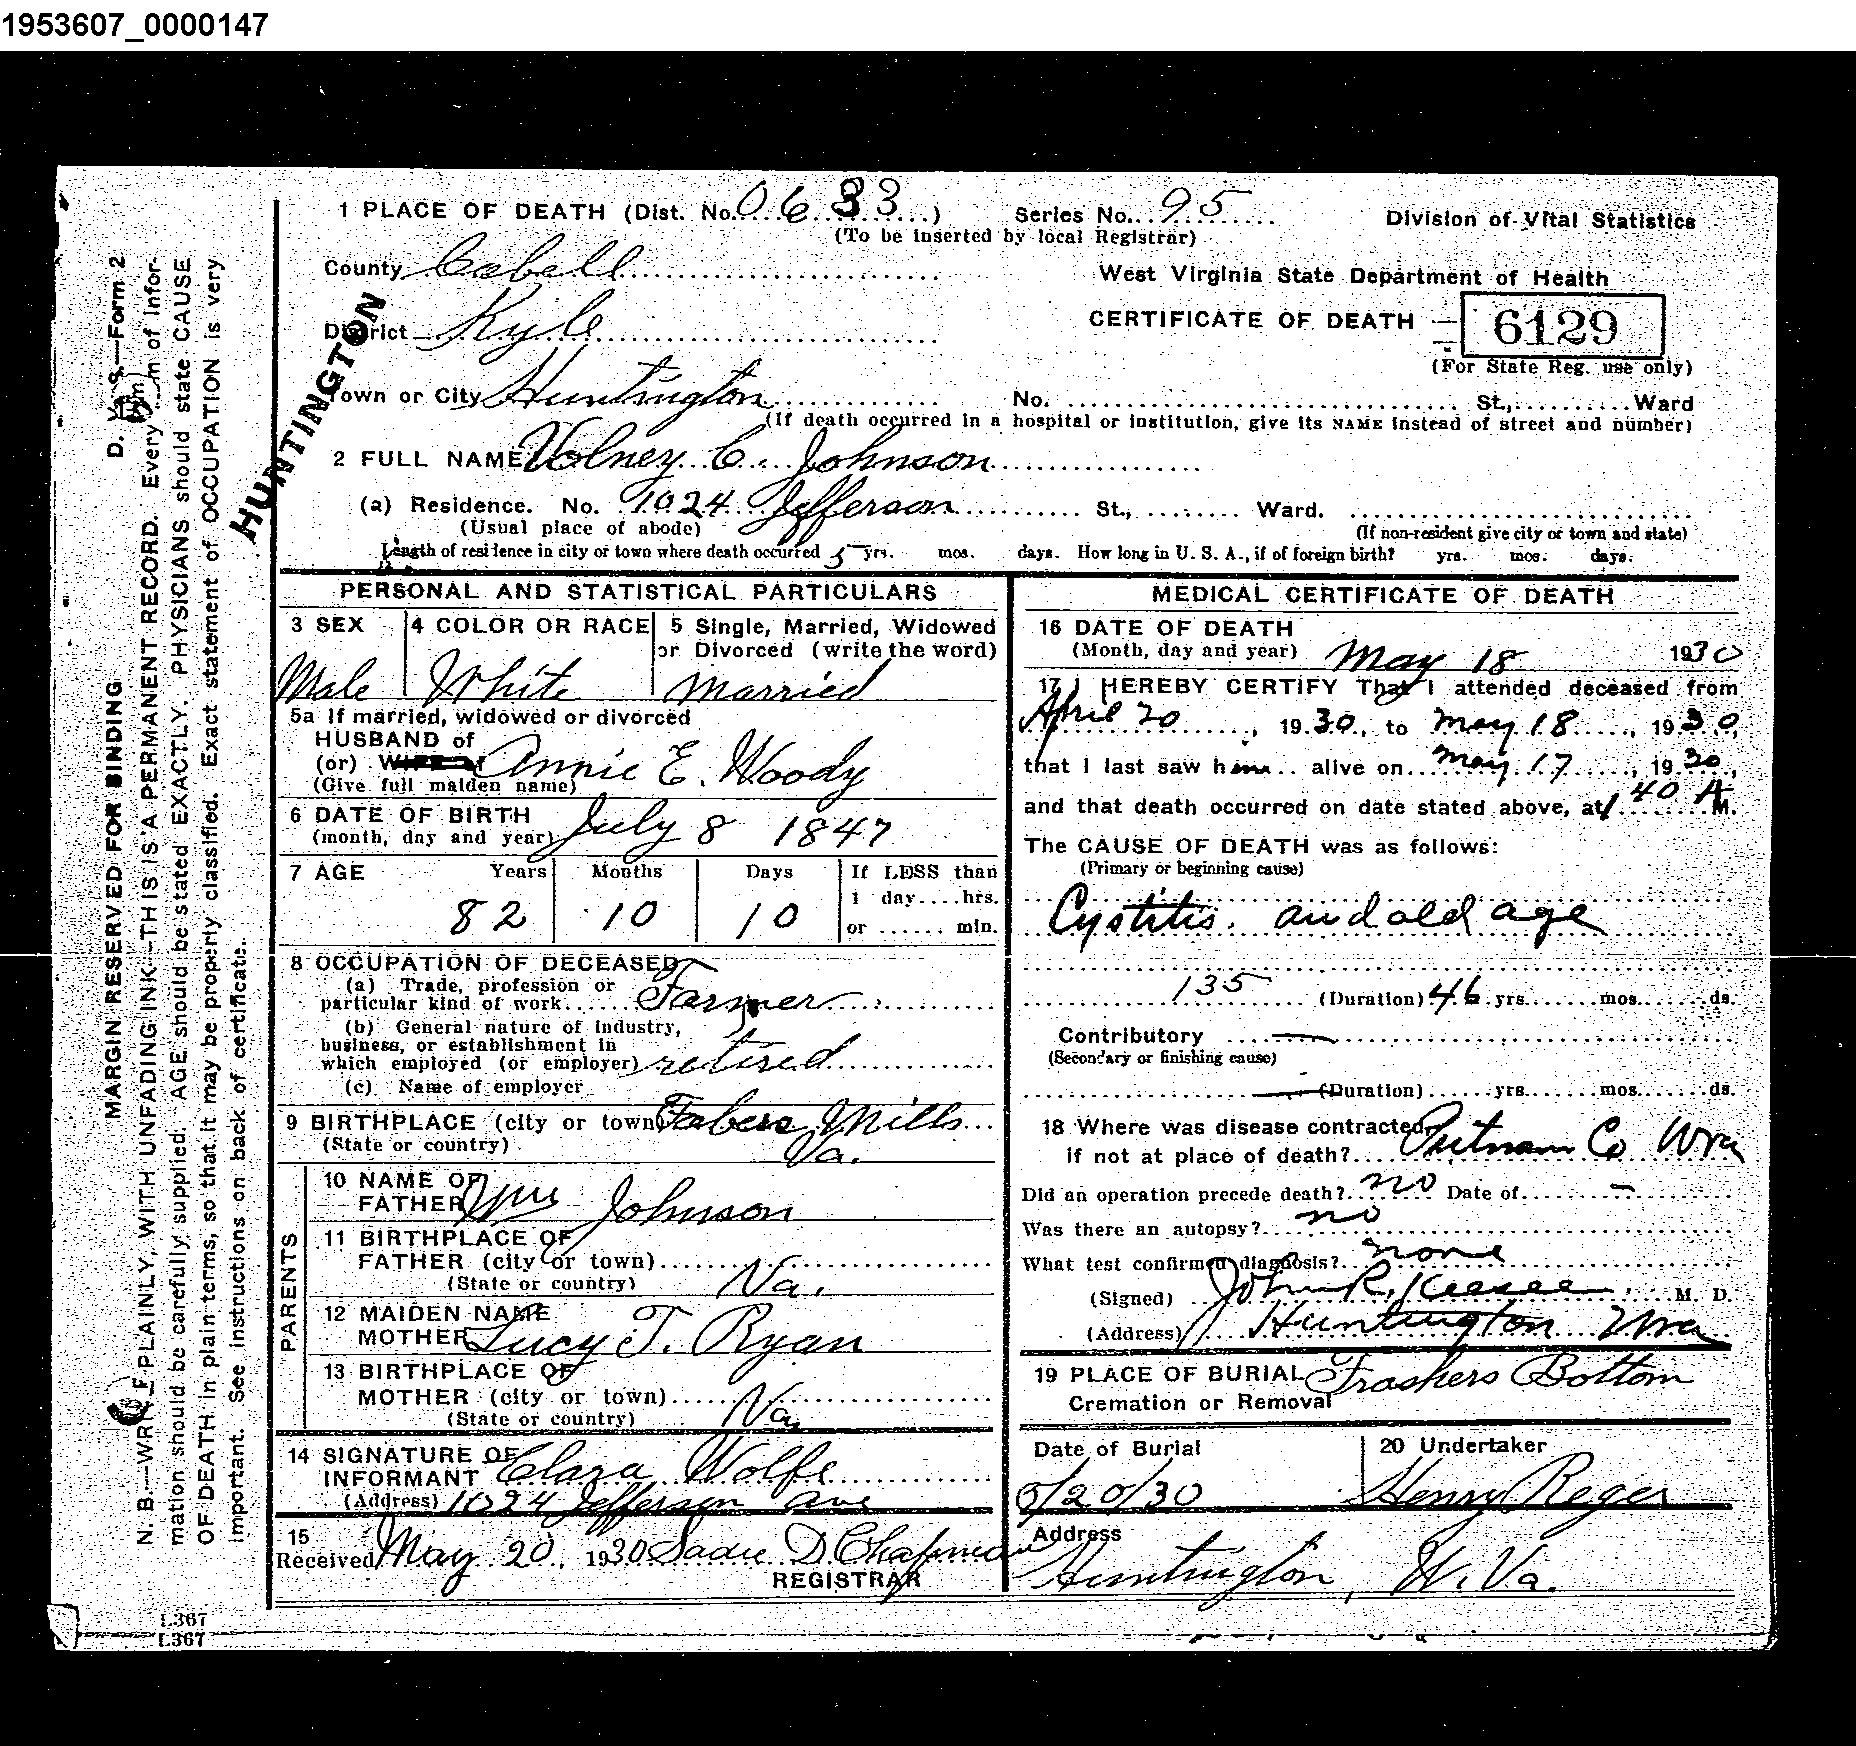 1953607_0000147
1 PLACE OF DEATH (Dist. No. 0633) Series No. 95 Division of Vital Statistics
(To be inserted by local Registrar)
County Cabell
West Virginia State Department of Health
District Kyle
CERTIFICATE OF DEATH 6129
(For State Reg. use only)
HUNTINGTON
Town or City Huntington No. St., Ward
(If death occurred in a hospital or institution, give its NAME instead of street and number)
2 FULL NAME Volney C. Johnson
(a) Residence. No. 1024 Jefferson St., Ward.
(Usual place of abode) (If non-resident give city or town and state)
Length of residence in city or town where death occurred 5 yrs. mos. days. How long in U. S. A., if of foreign birth? yrs. mos. days.
PERSONAL AND STATISTICAL PARTICULARS
3 SEX 4 COLOR OR RACE 5 Single, Married, Widowed
or Divorced (write the word)
Male White Married
5a If married, widowed or divorced
HUSBAND of
(or) WIFE of Annie E. Woody
(Give full maiden name)
6 DATE OF BIRTH
(month, day and year) July 8 1847
7 AGE Years Months Days If LESS than
1 day....hrs.
82 10 10 or ...... min.
8 OCCUPATION OF DECEASED
(a) Trade, profession or
particular kind of work Farmer
(b) General nature of industry,
business, or establishment in
which employed (or employer) retired
(c) Name of employer
9 BIRTHPLACE (city or town) Fabers Mills
(State or country) Va.
PARENTS
10 NAME OF
FATHER Johnson
11 BIRTHPLACE OF
FATHER (city or town)
(State or country) Va.
12 MAIDEN NAME
MOTHER Lucy T. Ryan
13 BIRTHPLACE OF
MOTHER (city or town)
(State or country) Va
14 SIGNATURE OF
INFORMANT Clara Wolfe
(Address) 1024 Jefferson ave
15
Received May 20, 1930 Sadie D Chapman
REGISTRAR
MEDICAL CERTIFICATE OF DEATH
16 DATE OF DEATH
(Month, day and year) May 18 1930
17 I HEREBY CERTIFY That I attended deceased from
April 20, 1930, to May 18, 1930,
that I last saw him alive on May 17, 1930,
and that death occurred on date stated above, at 1 40 A M.
The CAUSE OF DEATH was as follows:
(Primary or beginning cause)
Cystitis. and old age
135 (Duration) 46 yrs. mos. ds.
Contributory
(Secondary or finishing cause)
(Duration) yrs. mos. ds.
18 Where was disease contracted
if not at place of death? Putnam Co Wva
Did an operation precede death? no Date of –
Was there an autopsy? no
What test confirmed diagnosis? none
(Signed) John R. Keesee M. D.
(Address) Huntington Wva
19 PLACE OF BURIAL Frashers Bottom
Cremation or Removal
Date of Burial 20 Undertaker
5/20/30 Henry Reger
Address
Huntington, W. Va.
D. V. S.—Form 2
MARGIN RESERVED FOR BINDING
N. B.—WRITE PLAINLY, WITH UNFADING INK—THIS IS A PERMANENT RECORD. Every item of infor-
mation should be carefully supplied. AGE should be stated EXACTLY. PHYSICIANS should state CAUSE
OF DEATH in plain terms, so that it may be properly classified. Exact statement of OCCUPATION is very
important. See instructions on back of certificate.
L367
L367